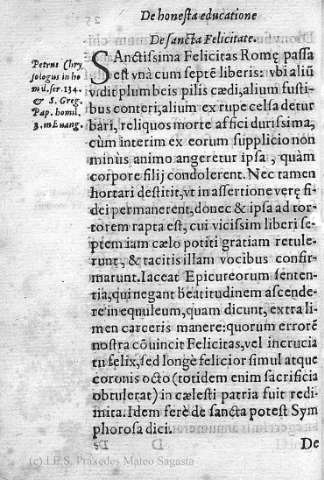 De honesta educatione
De sancta Felicitate.
Petrus Chry
sologus in ho
mil. ser. 134.
& S. Greg.
Pap. homil.
3. in Euang.
SAnctissima Felicitas Romę passa
est vnà cum septē liberis: vbi aliū
vidit plumbeis pilis cædi, alium fusti-
bus conteri, alium ex rupe celsa detur
bari, reliquos morte affici durissima,
cùm interim ex eorum supplicio non
minùs animo angeretur ipsa, quàm
corpore filij condolerent. Nec tamen
hortari destitit, vt in assertione verę fi-
dei permanerent, donec & ipsa ad tor-
torem rapta est, cui vicissim liberi se-
ptem iam cælo potiti gratiam retule-
runt, & tacitis illam vocibus confir-
marunt. Iaceat Epicureorum senten-
tia, qui negant beatitudinem ascende-
re in equuleum, quam dicunt, extra li-
men carceris manere: quorum errorē
nostra cōuincit Felicitas, vel in crucia
tu felix, sed longè felicior simul atque
coronis octo (totidem enim sacrificia
obtulerat) in cælesti patria fuit redi-
mita. Idem ferè de sancta potest Sym
phorosa dici.
De
(c) I.E.S. Práxedes Mateo Sagasta